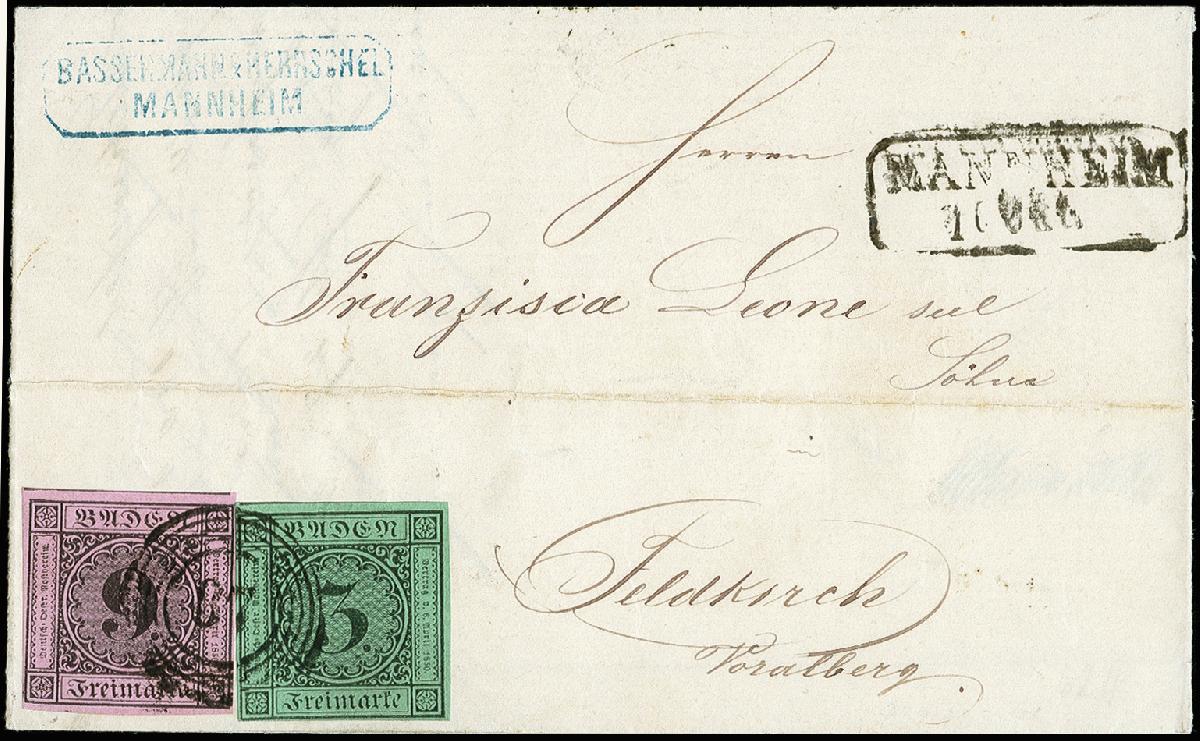 BASSERMANN & HERRSCHEL
MANNHEIM
Herren
MANNHEIM
Franzisca Leone sel
Söhne
in
Feldkirch
Voralberg
BADEN
9
Freimarke
87
BADEN
3
Freimarke